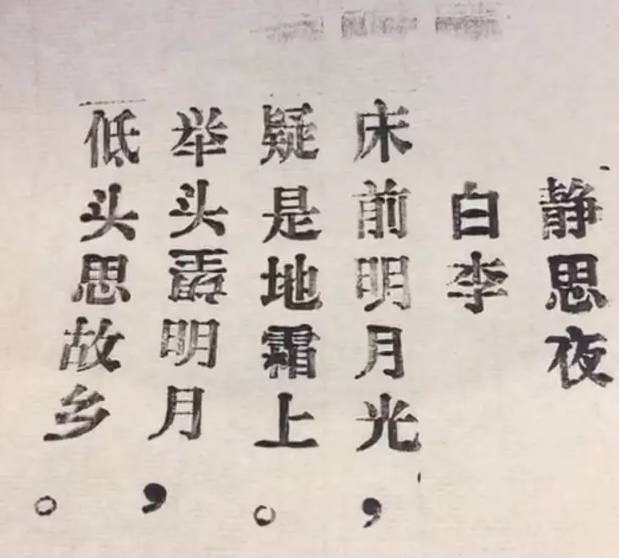 静思夜
白李
床前明月光，
疑是地霜上。
举头望明月，
低头思故乡。